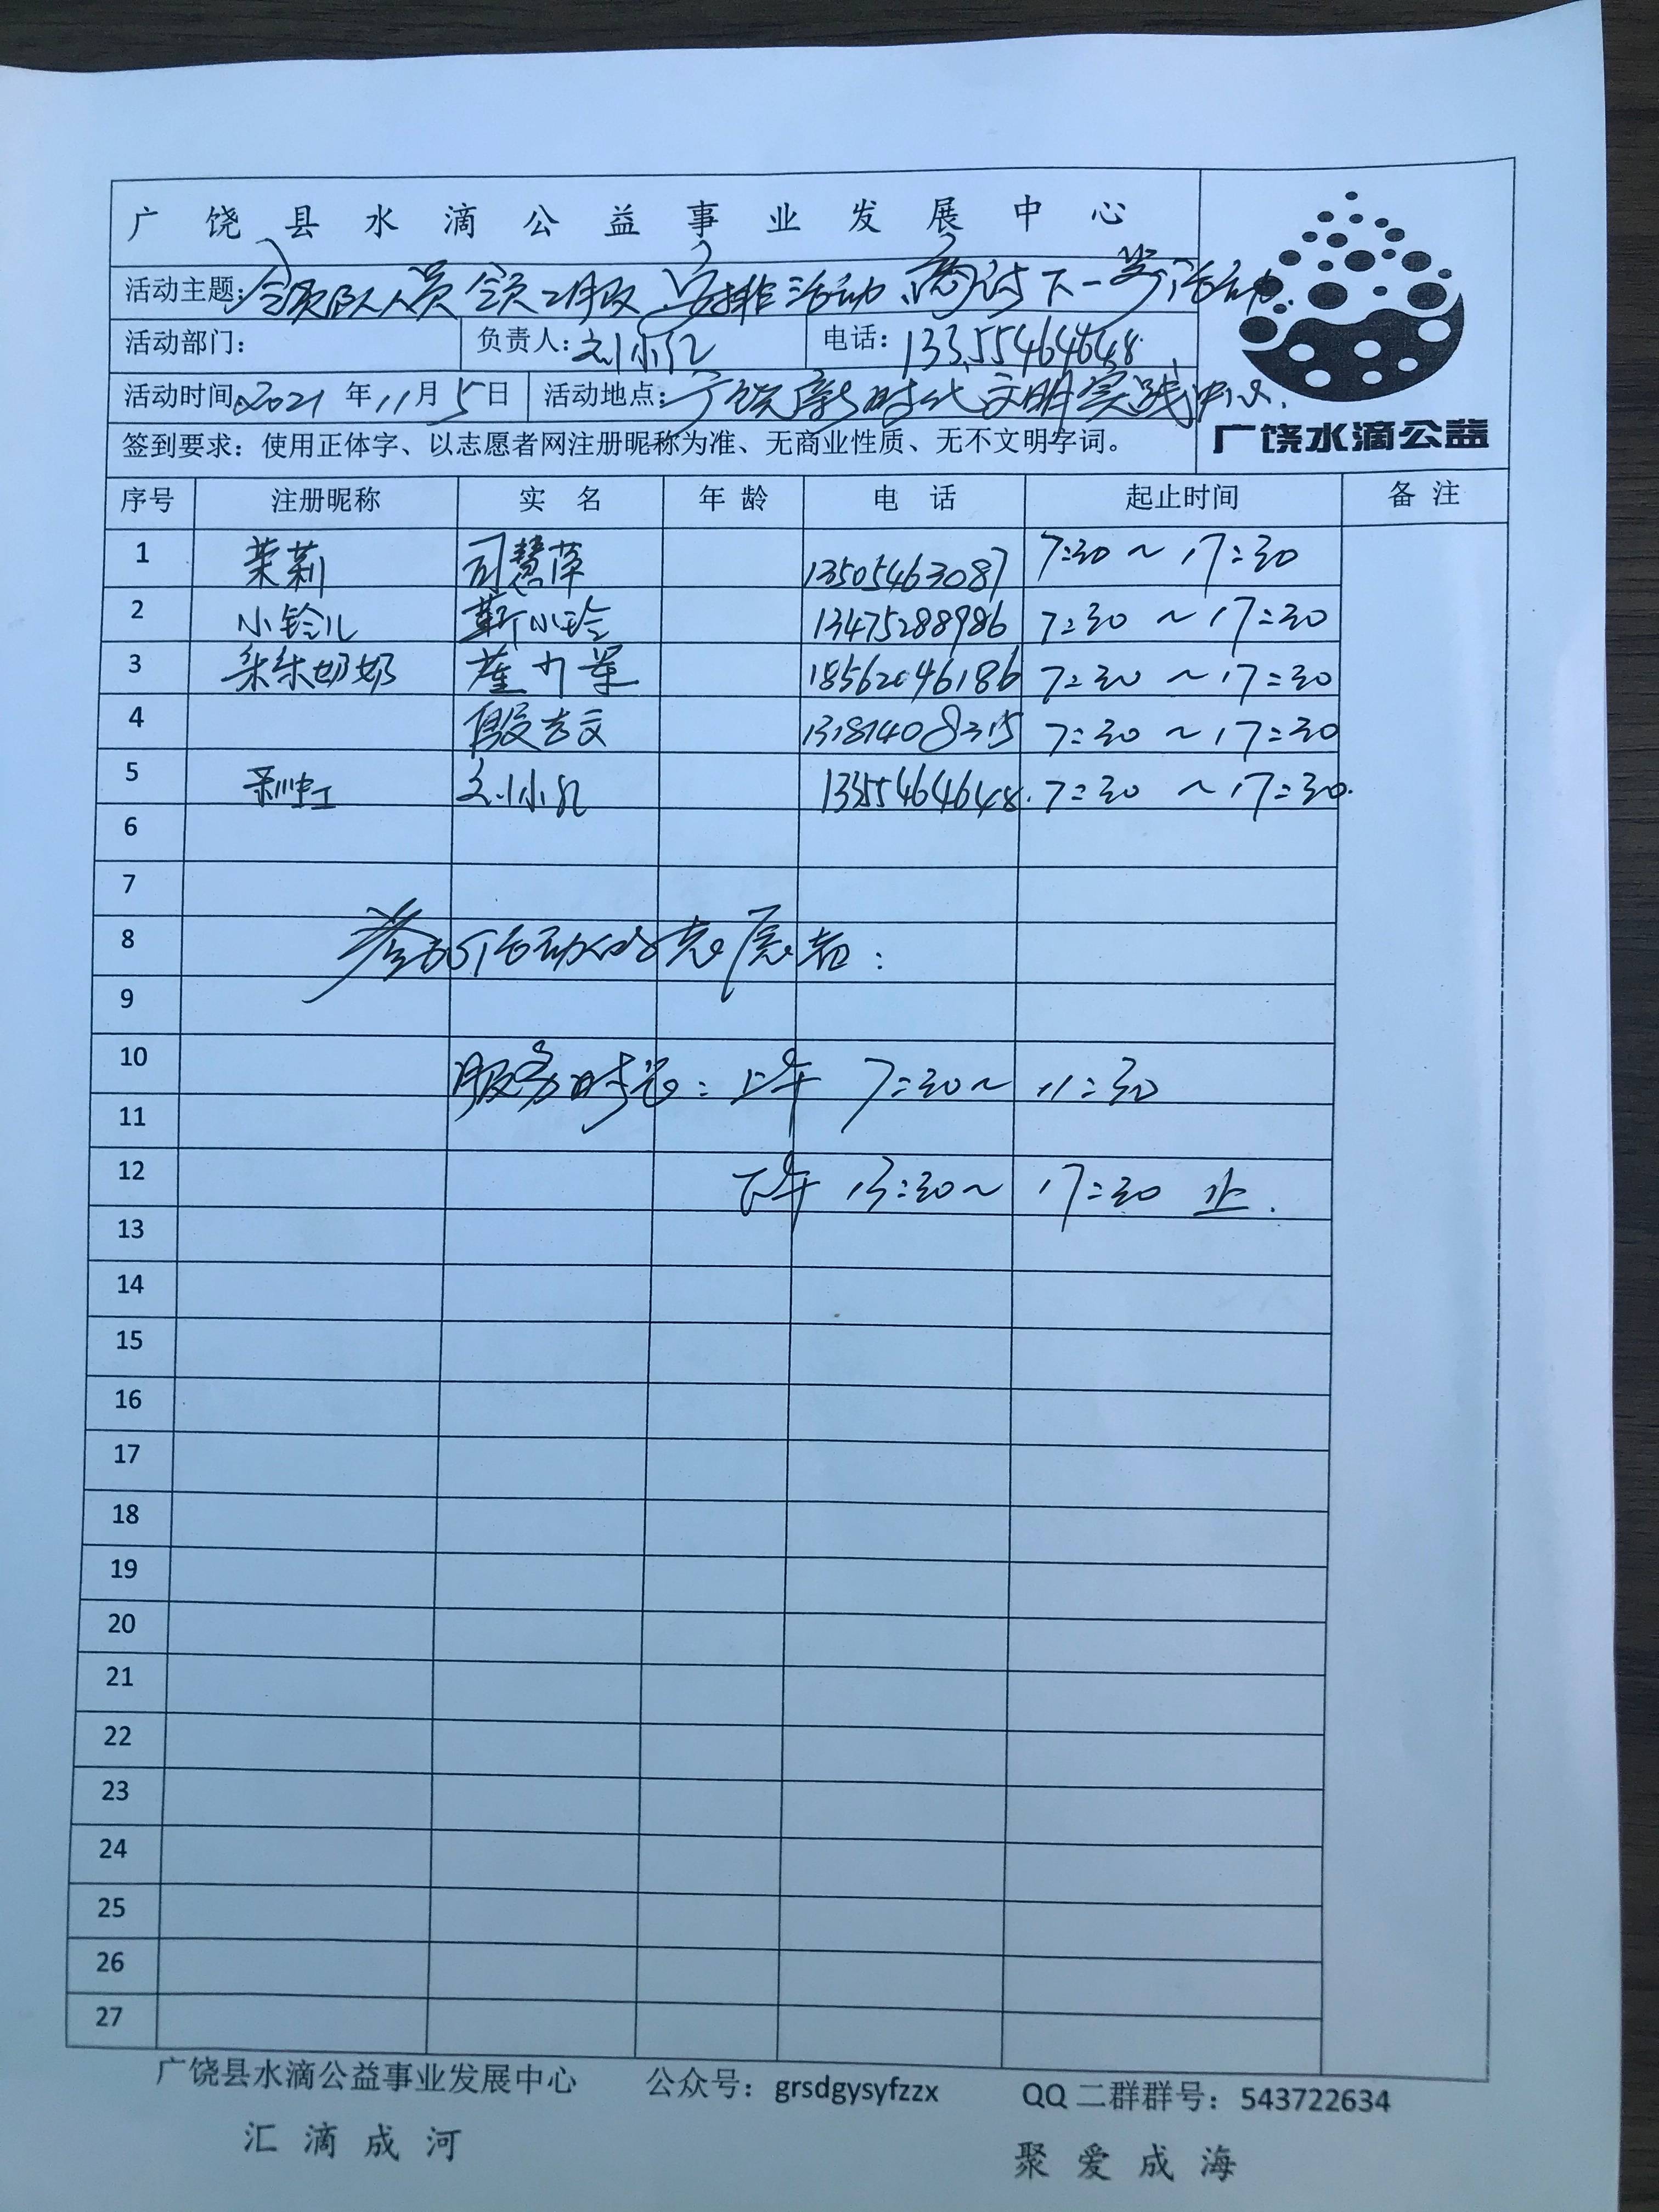 广饶县水滴公益事业发展中心
活动主题: 领队人员 安排活动 商讨下一步活动.
活动部门: 负责人: 刘小红 电话: 13355464648
活动时间 2021年11月5日 活动地点: 广饶新时代文明实践中心.
广饶水滴公益
签到要求：使用正体字、以志愿者网注册昵称为准、无商业性质、无不文明字词。
序号 注册昵称 实名 年龄 电话 起止时间 备注
1 茉莉 司慧萍 13505463087 7:30～17:30
2 小铃儿 靳小玲 13475288986 7:30～17:30
3 朵朵奶奶 18562046186 7:30～17:30
4 殷吉文 13181408315 7:30～17:30
5 彩虹 刘小红 13355464648. 7:30～17:30.
6
7
8 参加活动的志愿者：
9
10 服务时长：上午 7:30～11:30
11
12 下午 13:30～17:30 止.
13
14
15
16
17
18
19
20
21
22
23
24
25
26
27
广饶县水滴公益事业发展中心 公众号：grsdgysyfzzx QQ二群群号：543722634
汇滴成河 聚爱成海